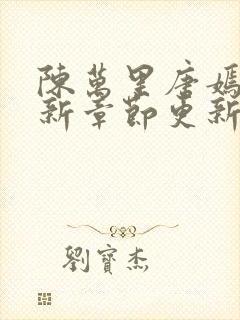 陳萬里唐嫣
新章節更新
劉寶杰